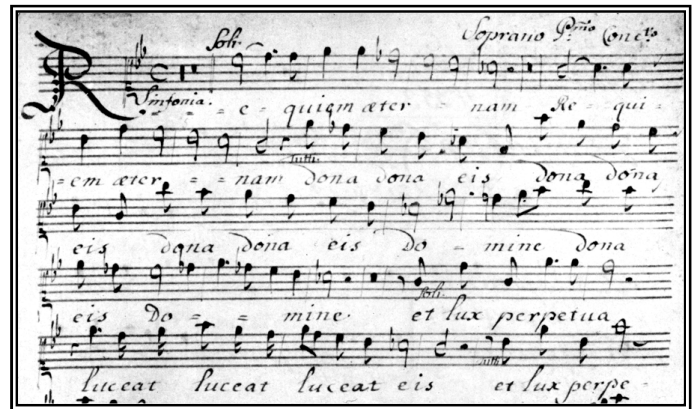 Soli. Soprano P.mo Conc.to
R
Sinfonia. - e - quiem æter - nam Re - qui -
Tutti
= em æter - = = nam dona dona eis dona dona
eis dona dona eis Do - mine dona
Soli.
eis Do = = mine. et lux perpetua
Tutti
luceat luceat luceat eis et lux perpe -